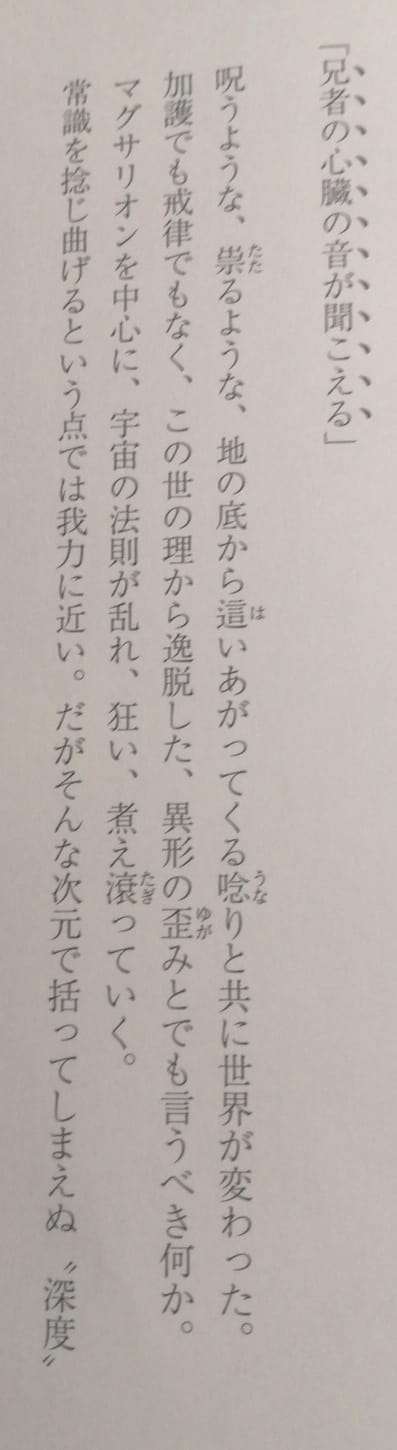 「兄者の心臓の音が聞こえる」
呪うような、祟るような、地の底から這いあがってくる唸りと共に世界が変わった。
加護でも戒律でもなく、この世の理から逸脱した、異形の歪みとでも言うべき何か。
マグサリオンを中心に、宇宙の法則が乱れ、狂い、煮え滾っていく。
常識を捻じ曲げるという点では我力に近い。だがそんな次元で括ってしまえぬ〝深度〟